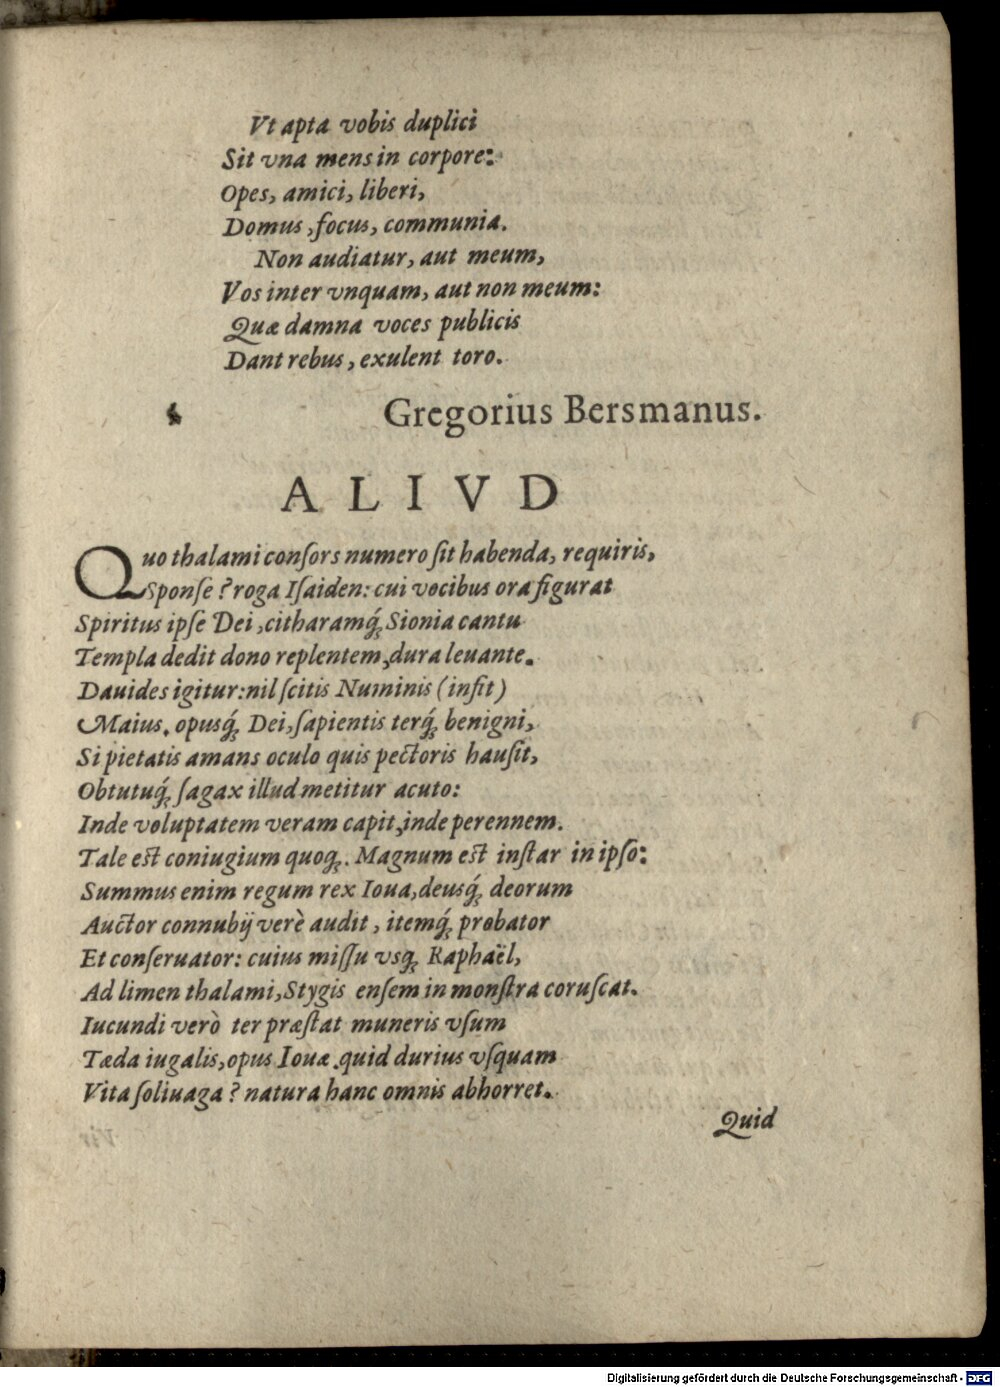 Vt apta vobis duplici
Sit vna mens in corpore:
Opes, amici, liberi,
Domus, focus, communia.
Non audiatur, aut meum,
Vos inter vnquam, aut non meum:
Quæ damna voces publicis
Dant rebus, exulent toro.
Gregorius Bersmanus.
ALIVD
Quo thalami conſors numero ſit habenda, requiris,
Sponſe? roga Iſaiden: cui vocibus ora figurat
Spiritus ipſe Dei, citharamq́; Sionia cantu
Templa dedit dono replentem, dura leuante.
Dauides igitur: nil ſcitis Numinis (infit)
Maius, opusq́; Dei, ſapientis terq́; benigni,
Si pietatis amans oculo quis pectoris hauſit,
Obtutuq́; ſagax illud metitur acuto:
Inde voluptatem veram capit, inde perennem.
Tale est coniugium quoq;. Magnum est inſtar in ipſo:
Summus enim regum rex Ioua, deusq́; deorum
Auctor connubij verè audit, itemq́; probator
Et conſeruator: cuius miſſu vsq; Raphaël,
Ad limen thalami, Stygis enſem in monſtra coruſcat.
Iucundi verò ter præſtat muneris vſum
Tæda iugalis, opus Iouæ. quid durius vſquam
Vita ſoliuaga? natura hanc omnis abhorret.
Quid
Digitalisierung gefördert durch die Deutsche Forschungsgemeinschaft - DFG